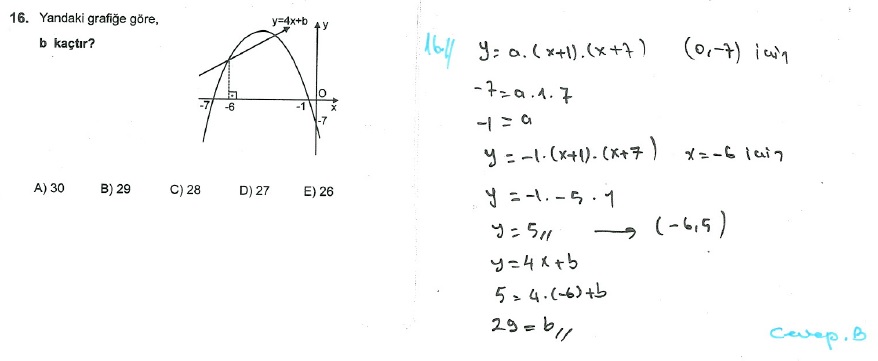 16. Yandaki grafiğe göre,
b kaçtır?
y=4x+b
y
O
-7 -6 -1 x
-7
A) 30 B) 29 C) 28 D) 27 E) 26
16-//
y = a.(x+1).(x+7) (0,-7) için
-7 = a.1.7
-1 = a
y = -1.(x+1).(x+7) x = -6 için
y = -1.-5.1
y = 5// → (-6,5)
y = 4x+b
5 = 4.(-6)+b
29 = b//
Cevap.B